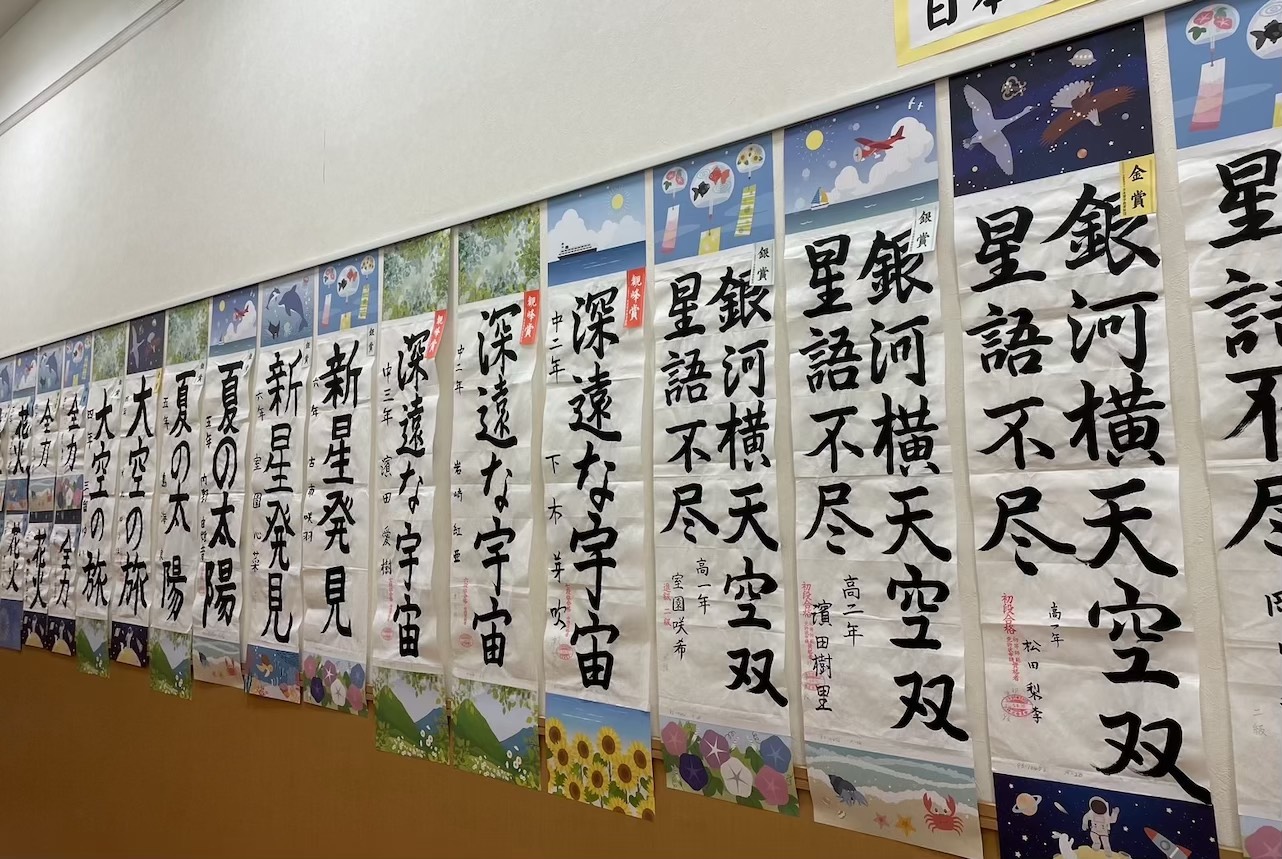 日本
星
語
不
尽
金賞
銀河横天空双
星語不尽
高一年
松田梨李
初段合格
銀賞
銀河横天空双
星語不尽
高二年
濱田樹里
初段合格
銀賞
銀河横天空双
星語不尽
高一年
室園咲希
親峰賞
深遠な宇宙
中二年
下木芽吹
親峰賞
深遠な宇宙
中二年
岩崎紅亜
深遠な宇宙
中三年
濱田愛樹
新星発見
六年
古市咲羽
新星発見
六年
室園心菜
夏の太陽
五年
夏の太陽
五年
大空の旅
大空の旅
四年
全力
全力
全力
花火
花火
花火